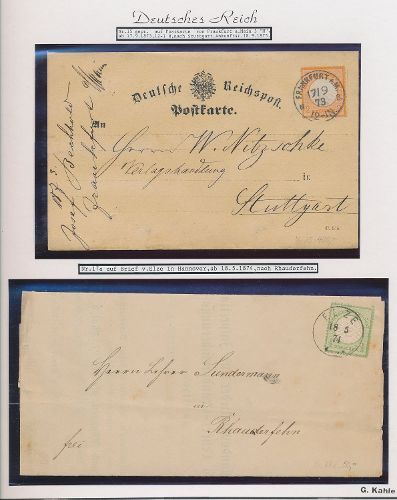 Deutsches Reich
Nr.15 gepr. auf Postkarte von Frankfurt a.Main
ab 17.9.1873, nach Stuttgart, Ankunftst. 18.9.1873
Deutsche Reichspost.
Postkarte.
FRANKFURT A.M.
17 9
73
An
Herrn W. Nitzschke
Verlagshandlung
in
Stuttgart
1873
Josef
Frankfurt a/Main
Nr.17a auf Brief v.Elze in Hannover, ab 18.5.1874, nach Rhauderfehn.
ELZE
18 5
74
Herrn Lehrer Sundermann
in
Rhauderfehn
frei
G. Kahle